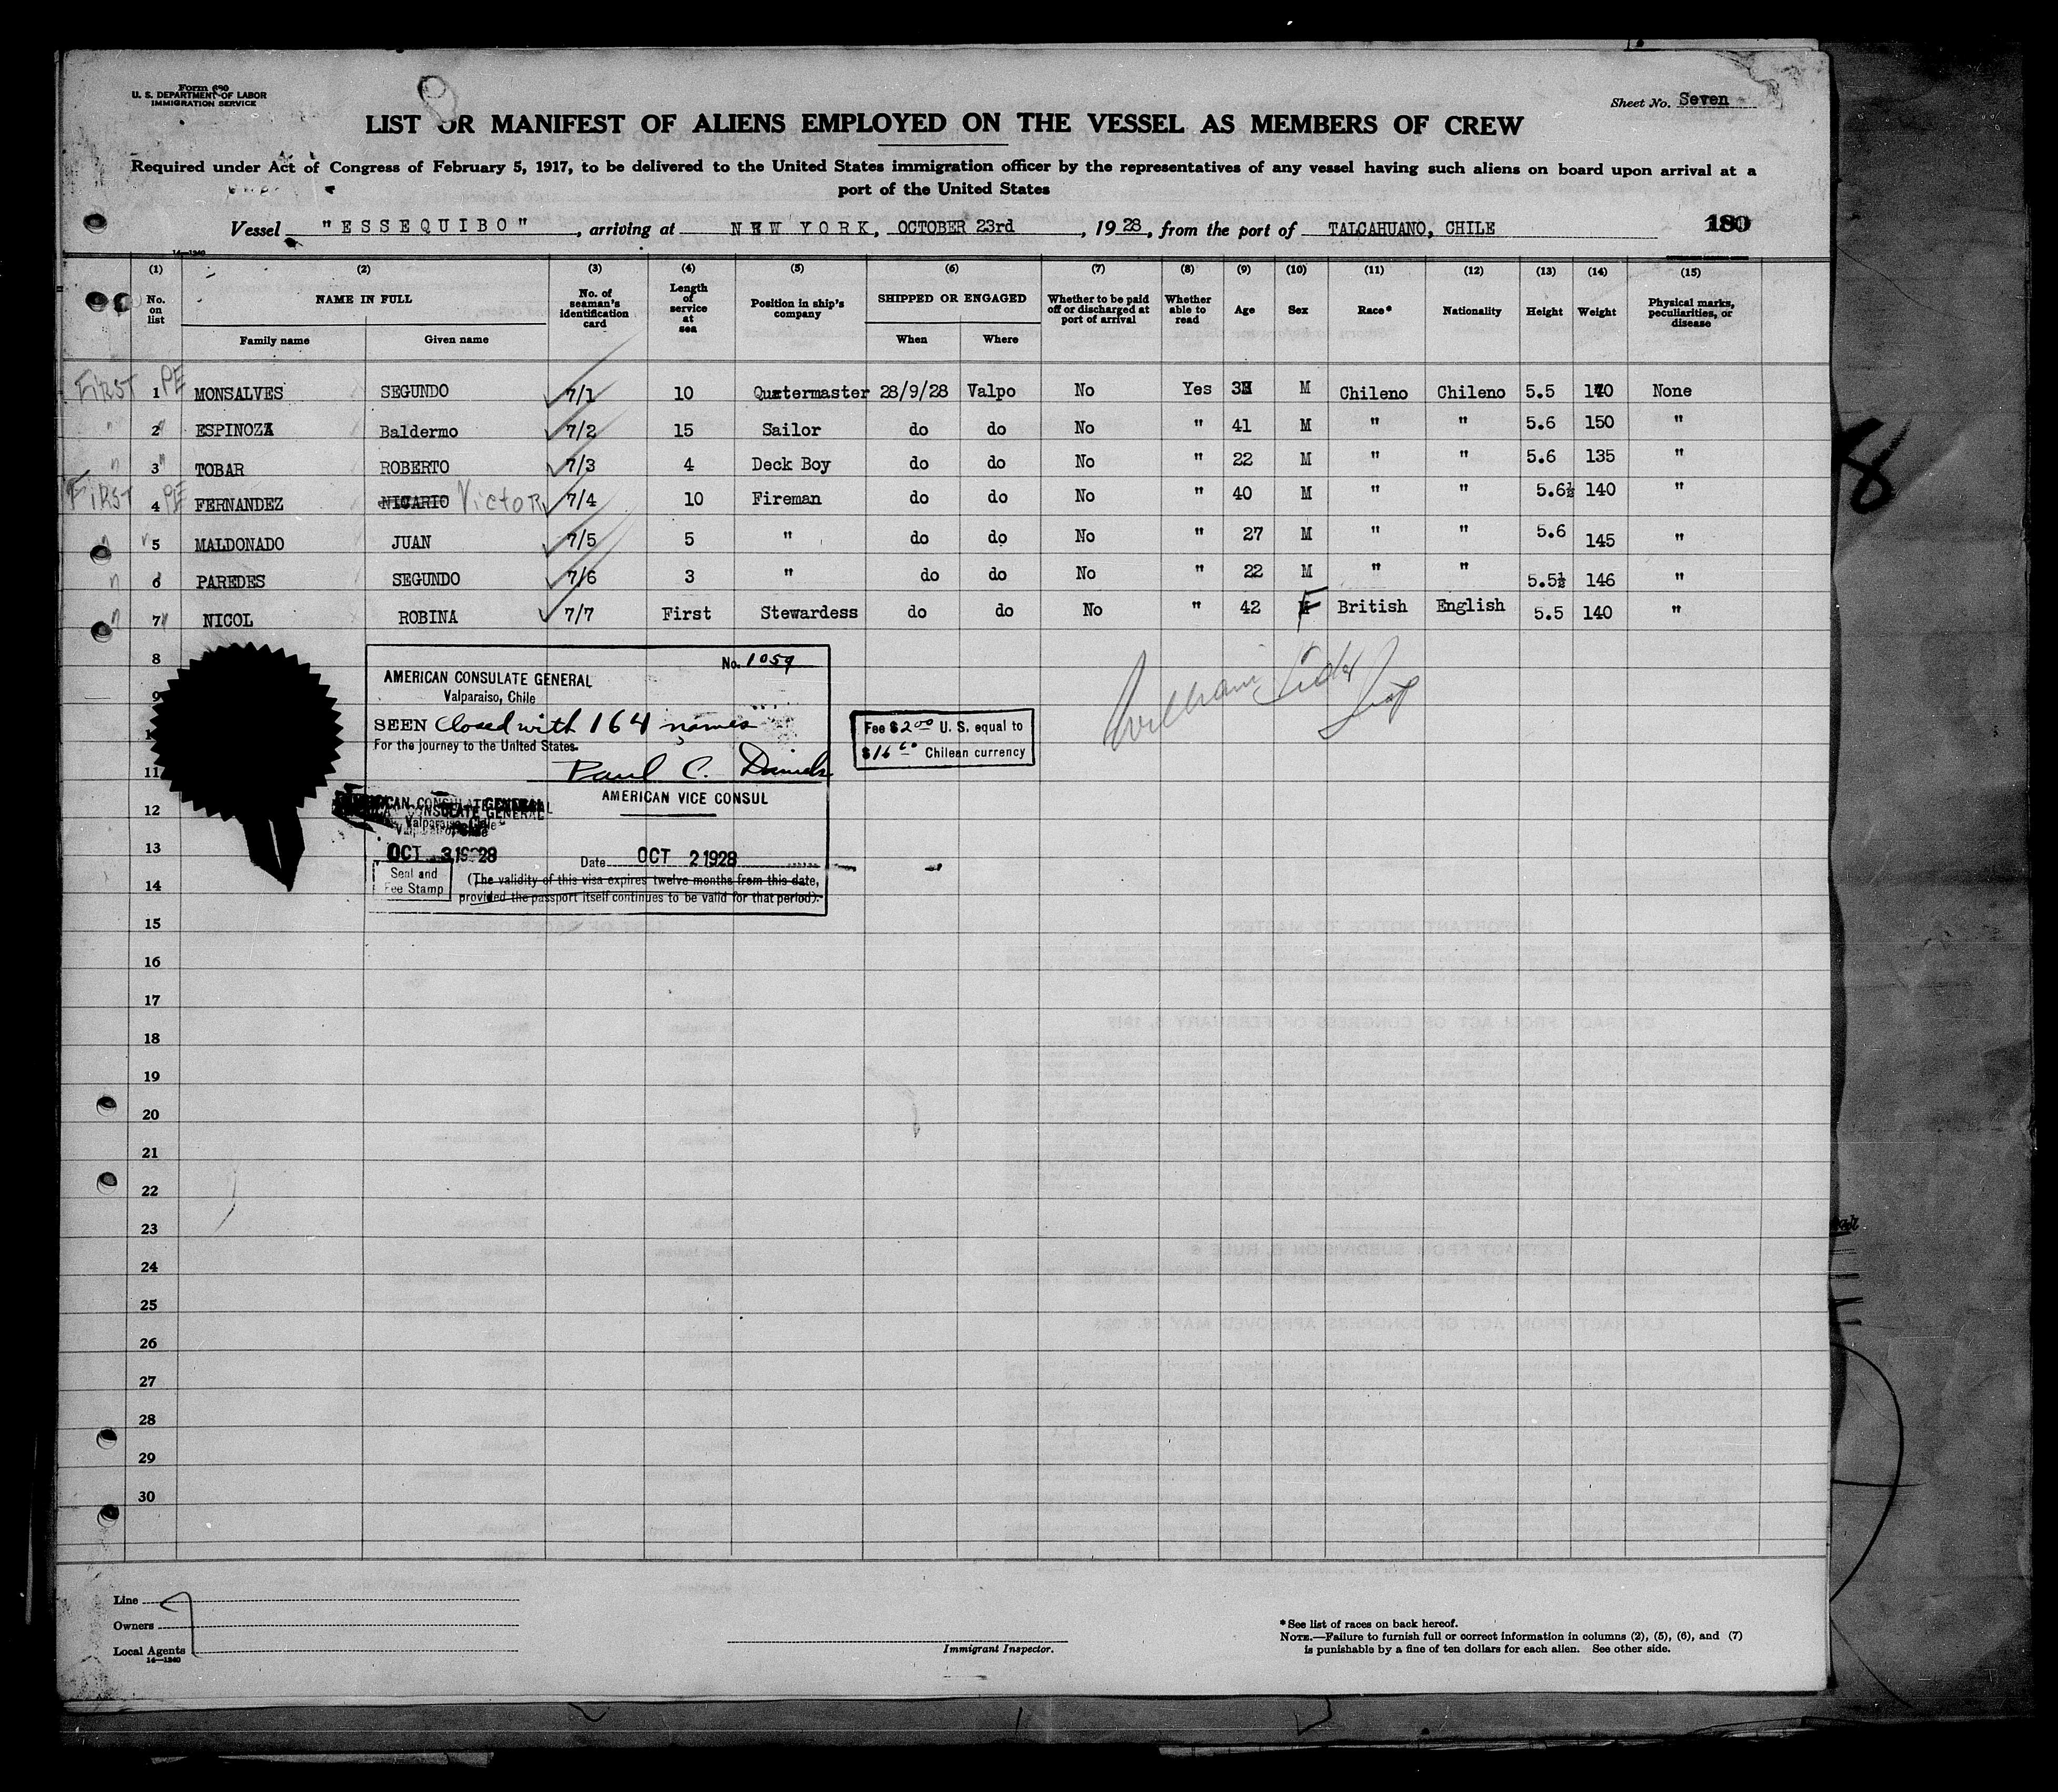 Form 680
U. S. DEPARTMENT OF LABOR
IMMIGRATION SERVICE
Sheet No. Seven
LIST OR MANIFEST OF ALIENS EMPLOYED ON THE VESSEL AS MEMBERS OF CREW
Required under Act of Congress of February 5, 1917, to be delivered to the United States immigration officer by the representatives of any vessel having such aliens on board upon arrival at a
port of the United States
Vessel "ESSEQUIBO", arriving at NEW YORK, OCTOBER 23rd, 1928, from the port of TALCAHUANO, CHILE 180
14—1240
(1) (2) (3) (4) (5) (6) (7) (8) (9) (10) (11) (12) (13) (14) (15)
No. on list NAME IN FULL Family name Given name No. of seaman's identification card Length of service at sea Position in ship's company SHIPPED OR ENGAGED When Where Whether to be paid off or discharged at port of arrival Whether able to read Age Sex Race* Nationality Height Weight Physical marks, peculiarities, or disease
FIRST PE 1 MONSALVES SEGUNDO 7/1 10 Quatermaster 28/9/28 Valpo No Yes M Chileno Chileno 5.5 140 None
" 2 " ESPINOZA Baldermo 7/2 15 Sailor do do No " 41 M " " 5.6 150 "
" 3 " TOBAR ROBERTO 7/3 4 Deck Boy do do No " 22 M " " 5.6 135 "
FIRST PE 4 FERNANDEZ NICARIO Victor 7/4 10 Fireman do do No " 40 M " " 5.6½ 140 "
" " 5 MALDONADO JUAN 7/5 5 " do do No " 27 M " " 5.6 145 "
" 6 PAREDES SEGUNDO 7/6 3 " do do No " 22 M " " 5.5½ 146 "
" 7 " NICOL ROBINA 7/7 First Stewardess do do No " 42 F British English 5.5 140 "
8
9
11
12
13
14
15
16
17
18
19
20
21
22
23
24
25
26
27
28
29
30
No. 1059
AMERICAN CONSULATE GENERAL
Valparaiso, Chile
SEEN Closed with 164 names
For the journey to the United States.
Paul C. Daniels
AMERICAN VICE CONSUL
Date OCT 2 1928
(The validity of this visa expires twelve months from this date,
provided the passport itself continues to be valid for that period).
AMERICAN CONSULATE GENERAL
Valparaiso, Chile
OCT 3 1928
Seal and
Fee Stamp
Fee $2.00 U. S. equal to
$16.60 Chilean currency
William
8
Line
Owners
Local Agents
14—1240
Immigrant Inspector.
*See list of races on back hereof.
NOTE.—Failure to furnish full or correct information in columns (2), (5), (6), and (7)
is punishable by a fine of ten dollars for each alien. See other side.